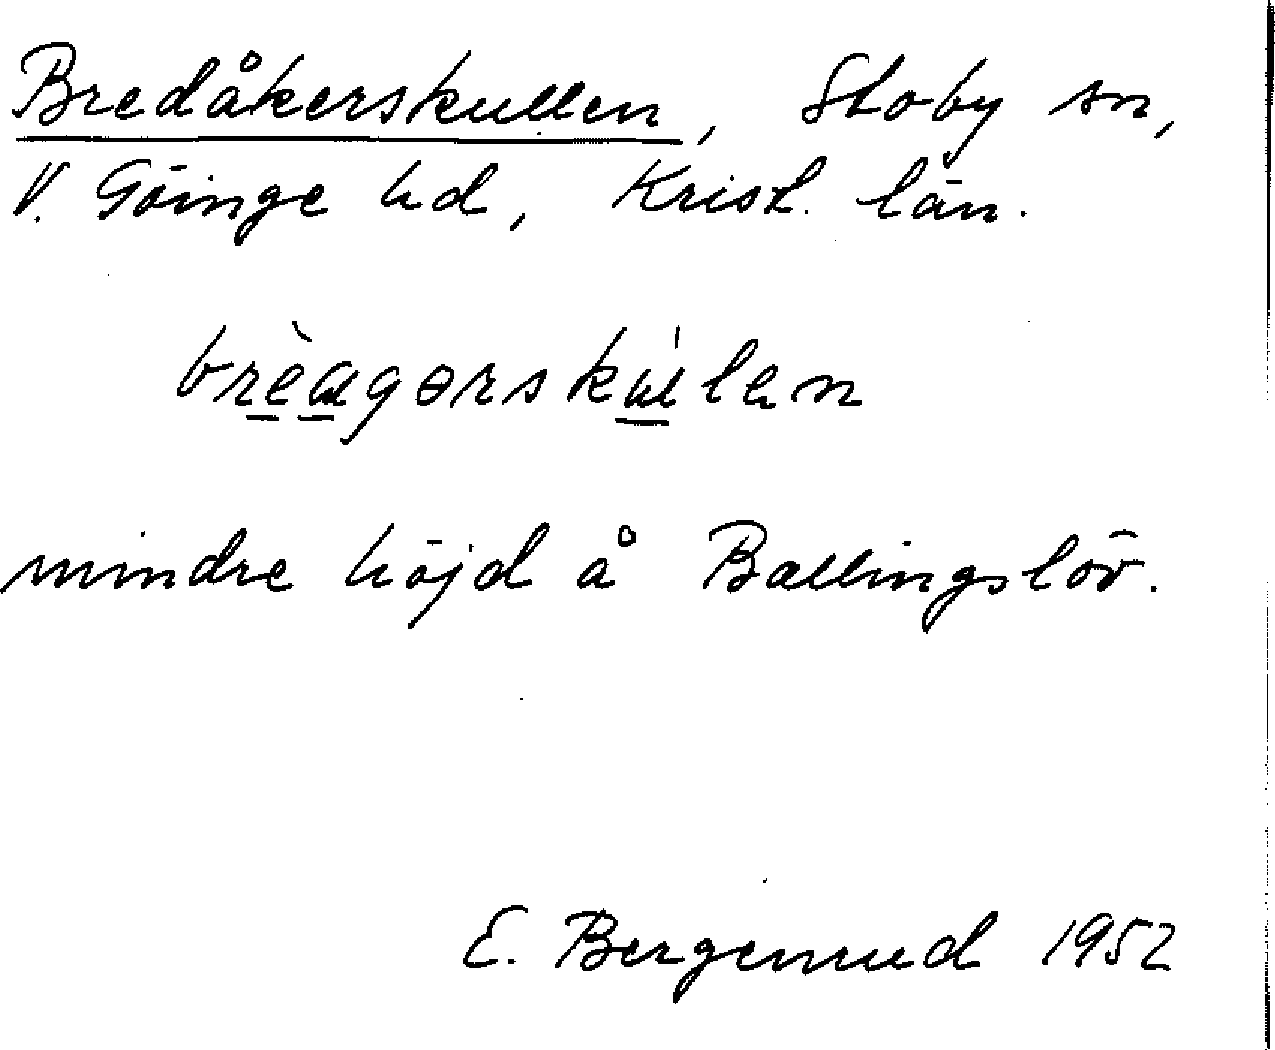 Bredåkerskullen, Stoby sn,
V. Göinge hd, Krist. län.
brèagərskúlen
mindre höjd å Ballingslöv.
E. Bergenrud 1952